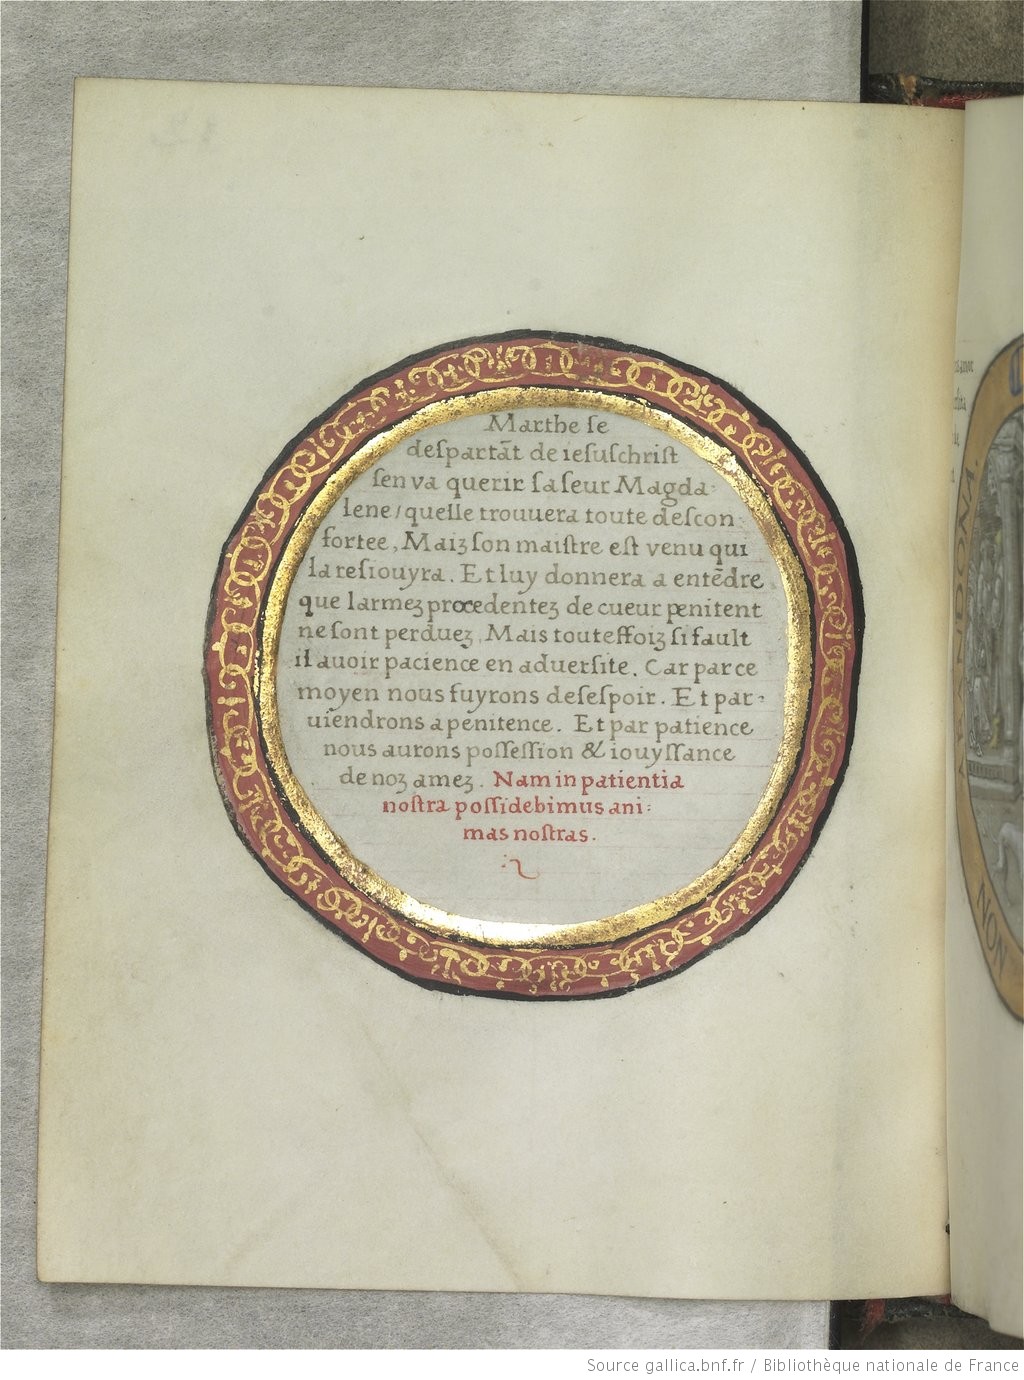 Marthe ſe
deſpartāt de ieſuſchriſt
ſen va querir ſa ſeur Magda-
lene / quelle trouuera toute deſcon-
fortee, Maiz ſon maiſtre eſt venu qui
la reſiouyra. Et luy donnera a entēdre
que larmez procedentez de cueur penitent
ne ſont perduez, Mais touteffoiz ſi fault
il auoir pacience en aduerſite. Car par ce
moyen nous fuyrons deſeſpoir. Et par-
uiendrons a penitence. Et par patience
nous aurons poſſeſſion & iouyſſance
de noz amez. Nam in patientia
noſtra poſſidebimus ani:
mas noſtras.
NON
Source gallica.bnf.fr / Bibliothèque nationale de France